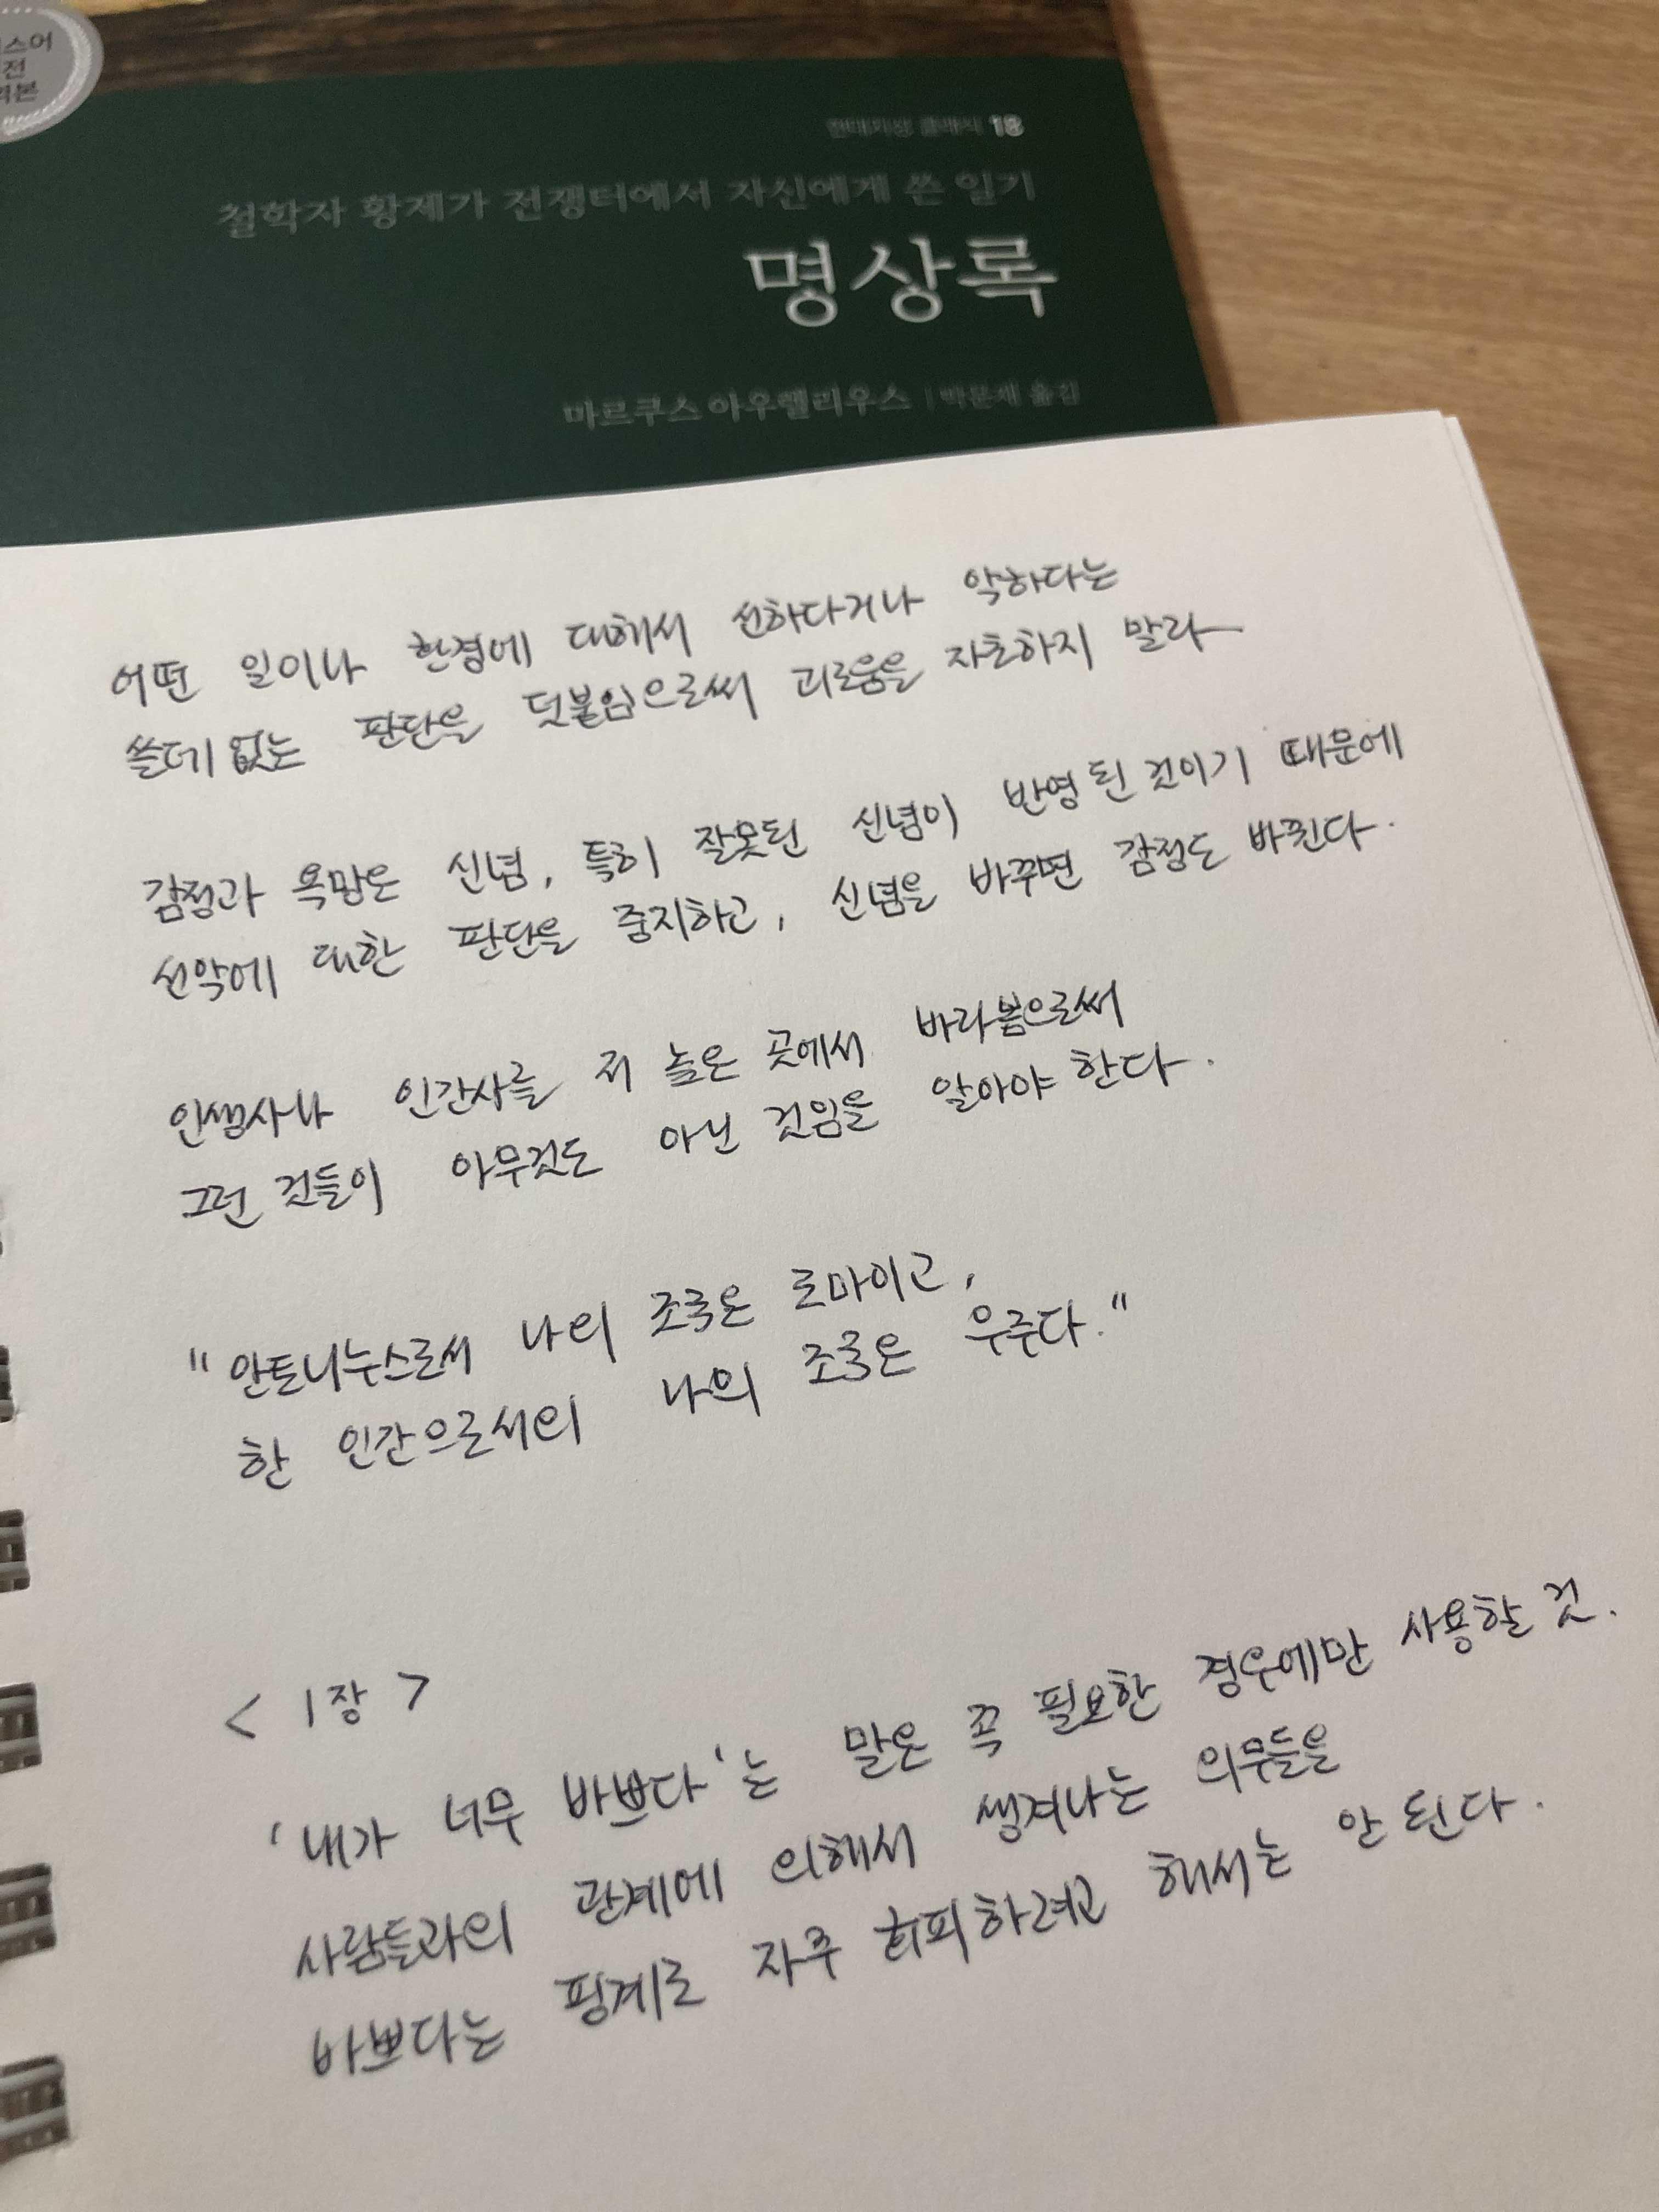 스어
전
역본
현대지성 클래식 18
철학자 황제가 전쟁터에서 자신에게 쓴 일기
명상록
마르쿠스 아우렐리우스 | 박문재 옮김
어떤 일이나 환경에 대해서 선하다거나 악하다는
쓸데없는 판단을 덧붙임으로써 괴로움을 자초하지 말라
감정과 욕망은 신념, 특히 잘못된 신념이 반영된 것이기 때문에
선악에 대한 판단을 중지하고, 신념을 바꾸면 감정도 바뀐다.
인생사나 인간사를 저 높은 곳에서 바라봄으로써
그런 것들이 아무것도 아닌 것임을 알아야 한다.
"안토니누스로써 나의 조국은 로마이고,
한 인간으로서의 나의 조국은 우주다."
< 1장 >
'내가 너무 바쁘다'는 말은 꼭 필요한 경우에만 사용할 것.
사람들과의 관계에 의해서 생겨나는 의무들을
바쁘다는 핑계로 자주 회피하려고 해서는 안 된다.